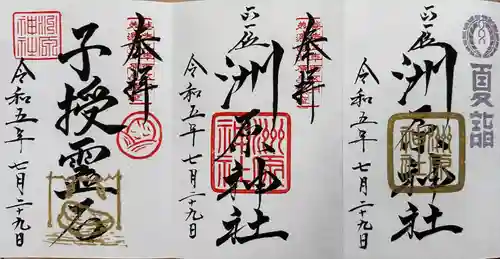 奉拝
子授霊石
令和五年 七月二十九日
洲原神社
奉拝
正一位
洲原神社
令和五年 七月二十九日
洲原神社
夏詣
正一位
洲原神社
令和五年 七月二十九日